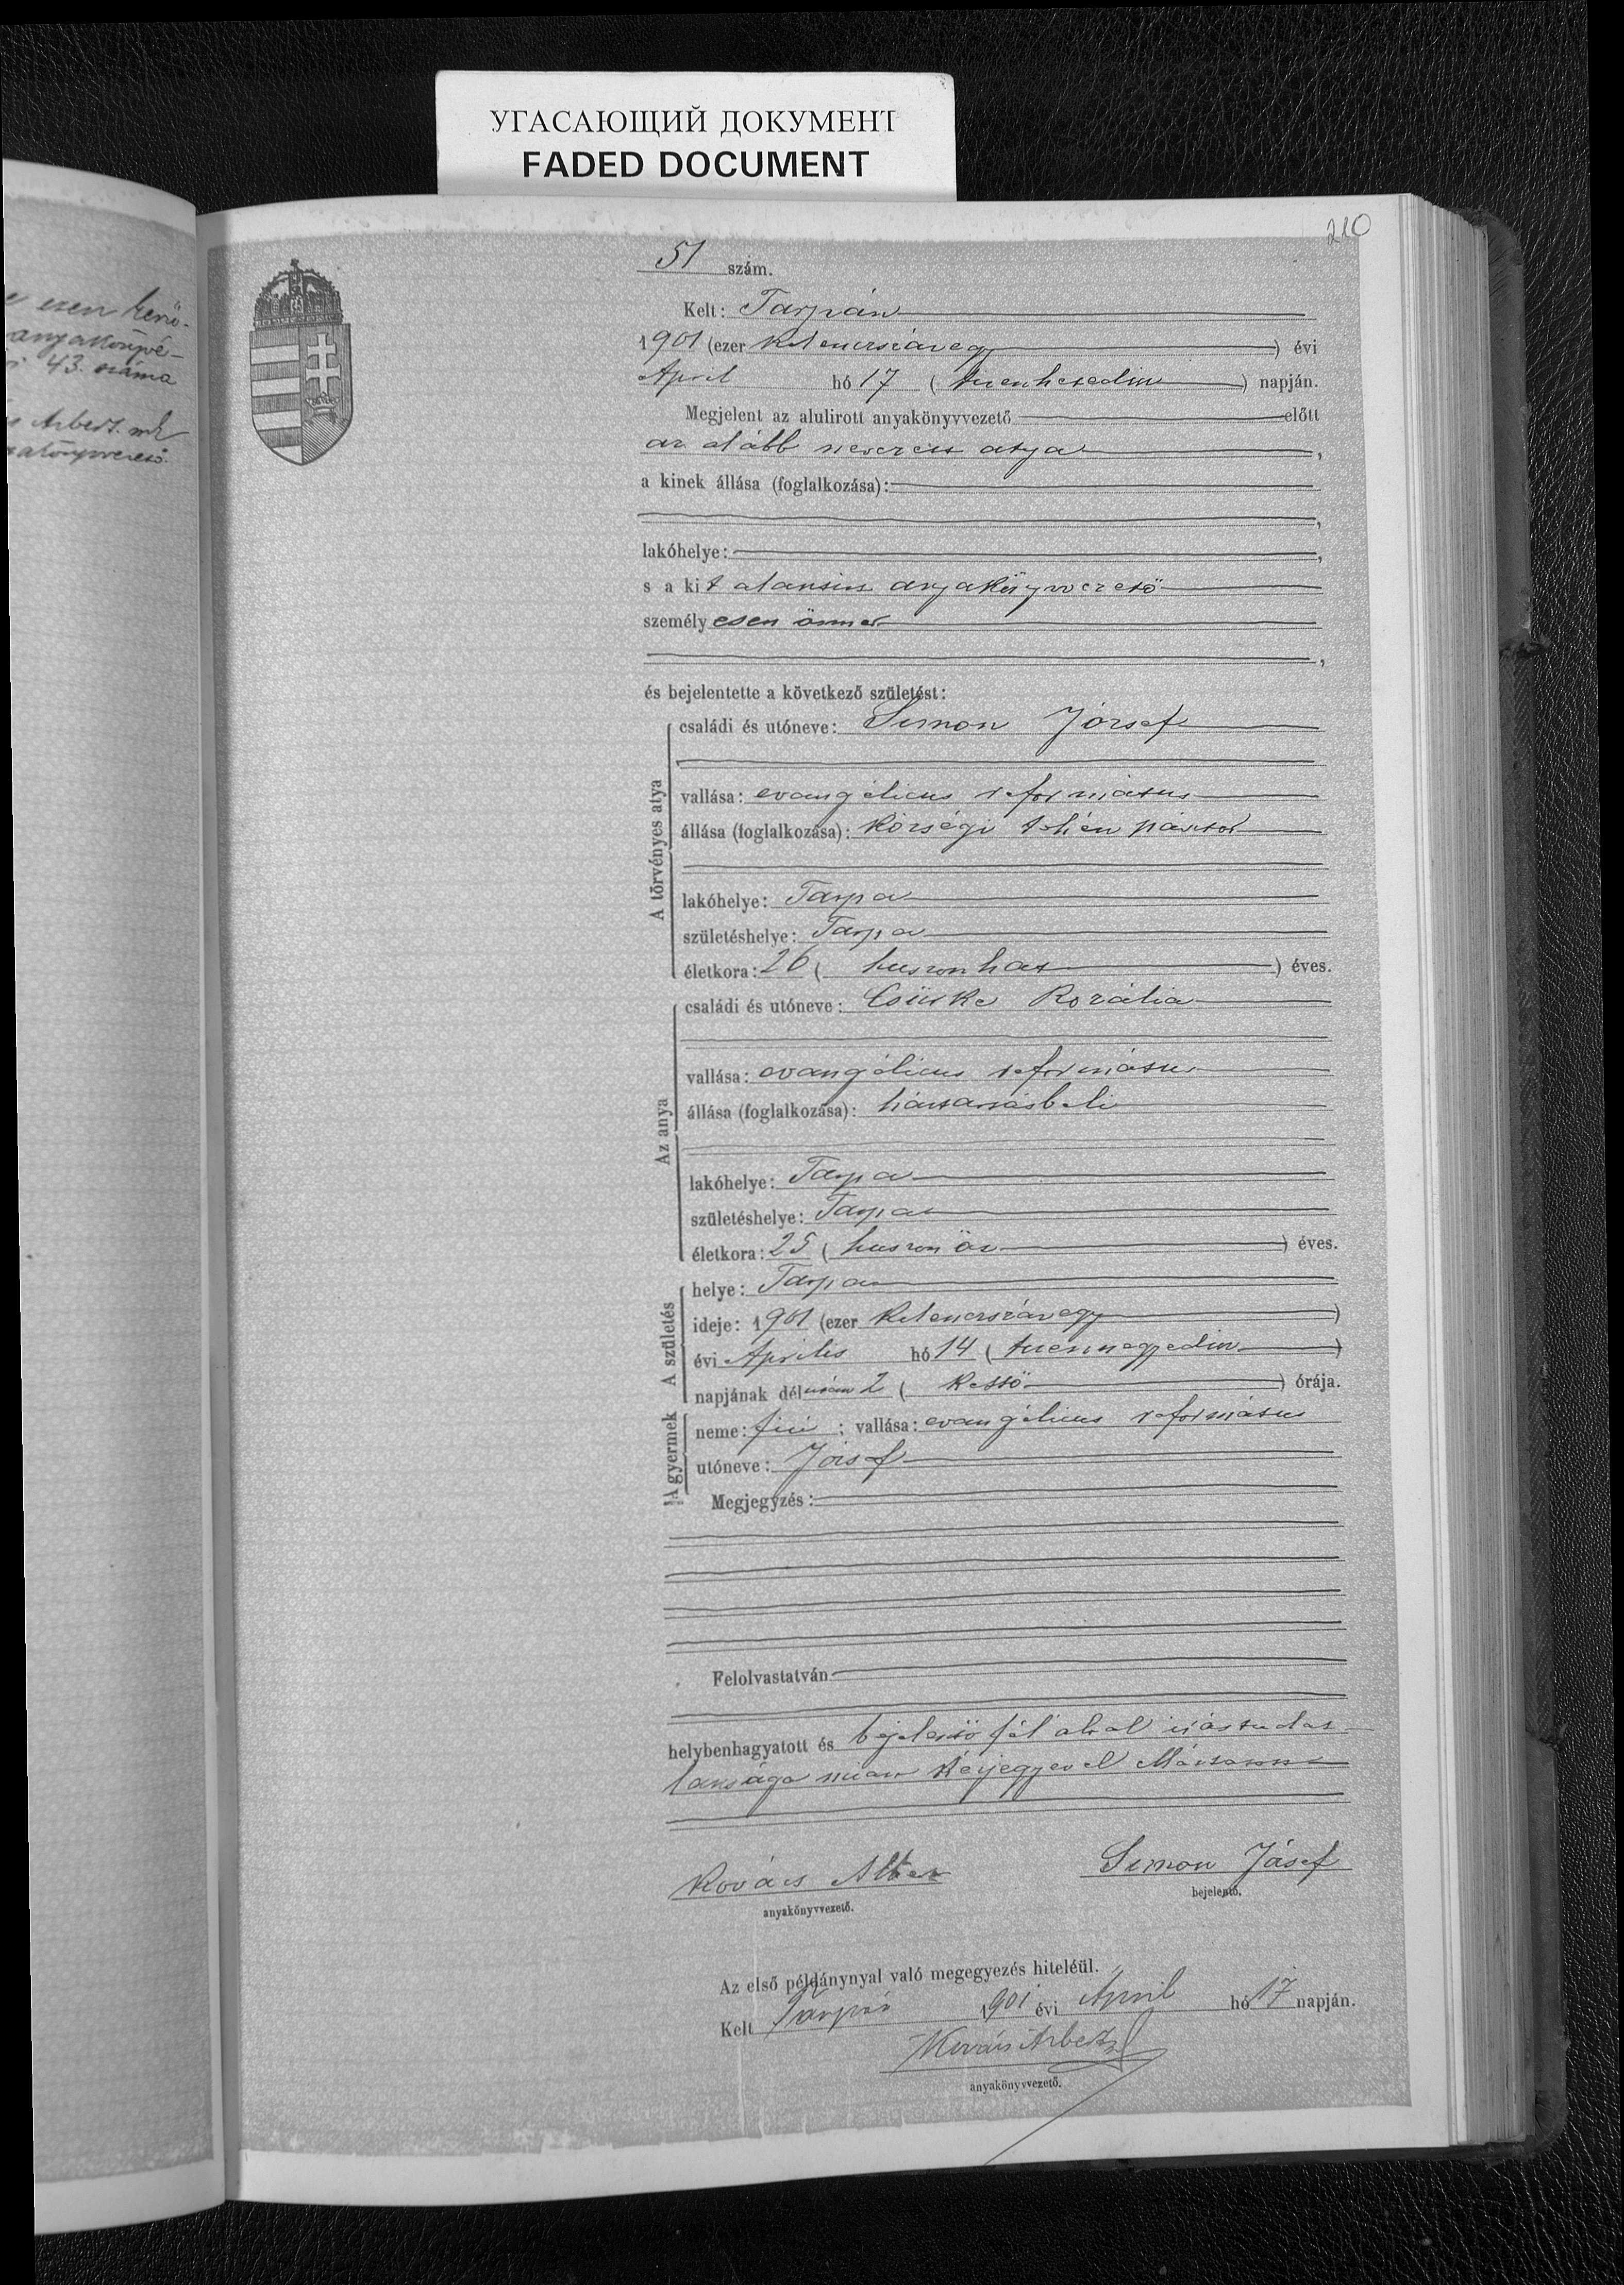 УГАСАЮЩИЙ ДОКУМЕНТ
FADED DOCUMENT
210
43. száma
51 szám.
Kelt: Tarpán
1901 (ezer kilenczszázegy) évi
April hó 17 (tizenhetedik) napján.
Megjelent az alulirott anyakönyvvezető előtt
az alább nevezett atya,
a kinek állása (foglalkozása):
lakóhelye:
s a kit alantirt anyakönyvvezető
személyesen ismer
és bejelentette a következő születést:
A törvényes atya
családi és utóneve: Simon József
vallása: evangélicus református
állása (foglalkozása): községi tehén pásztor
lakóhelye: Tarpa
születéshelye: Tarpa
életkora: 26 (huszonhat) éves.
Az anya
családi és utóneve: Csüske Rozália
vallása: evangélicus református
állása (foglalkozása): háztartásbeli
lakóhelye: Tarpa
születéshelye: Tarpa
életkora: 25 (huszonöt) éves.
A születés
helye: Tarpa
ideje: 1901 (ezer kilenczszázegy)
évi Április hó 14 (tizennegyedik)
napjának délután 2 (kettő) órája.
A gyermek
neme: fiú; vallása: evangélicus református
utóneve: József
Megjegyzés:
Felolvastatván
helybenhagyatott és bejelentő fél által irástudat
lansága miatt kézjegyével
Kovács Albert
anyakönyvvezető.
Simon József
bejelentő.
Az első példánynyal való megegyezés hiteléül.
Kelt Tarpán 1901 évi April hó 17 napján.
Kovács Albert
anyakönyvvezető.